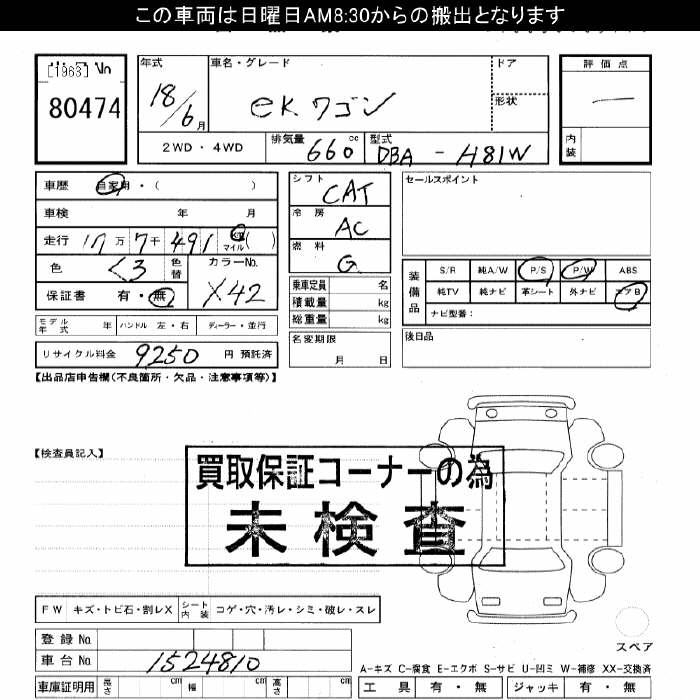 この車両は日曜日AM8:30からの搬出となります
[1963] No
80474
年式
18/6月
車名・グレード
eKワゴン
ドア
形状
評価点
—
内装
2WD・4WD
排気量 660 cc
型式 DBA - H81W
車歴 自家用・( )
車検 年 月
走行 17万7千491 km マイル( )
色 くろ 色替 カラーNo. X42
保証書 有・無
モデル年式 年 ハンドル 左・右 ディーラー・並行
リサイクル料金 9250 円 預託済
シフト CAT
冷房 AC
燃料 G
乗車定員 名
積載量 kg
総重量 kg
名変期限
月 日
セールスポイント
装備品
S/R 純A/W P/S P/W ABS
純TV 純ナビ 革シート 外ナビ エアB
ナビ型番:
後日品
【出品店申告欄(不良箇所・欠品・注意事項等)】
【検査員記入】
買取保証コーナーの為
未検査
FW キズ・トビ石・割レX シート内装 コゲ・穴・汚レ・シミ・破レ・スレ
登録No.
車台No. 1524810
車庫証明用 長さ cm 幅 cm 高さ cm
スペア
A-キズ C-腐食 E-エクボ S-サビ U-凹ミ W-補修 XX-交換済
工具 有・無 ジャッキ 有・無